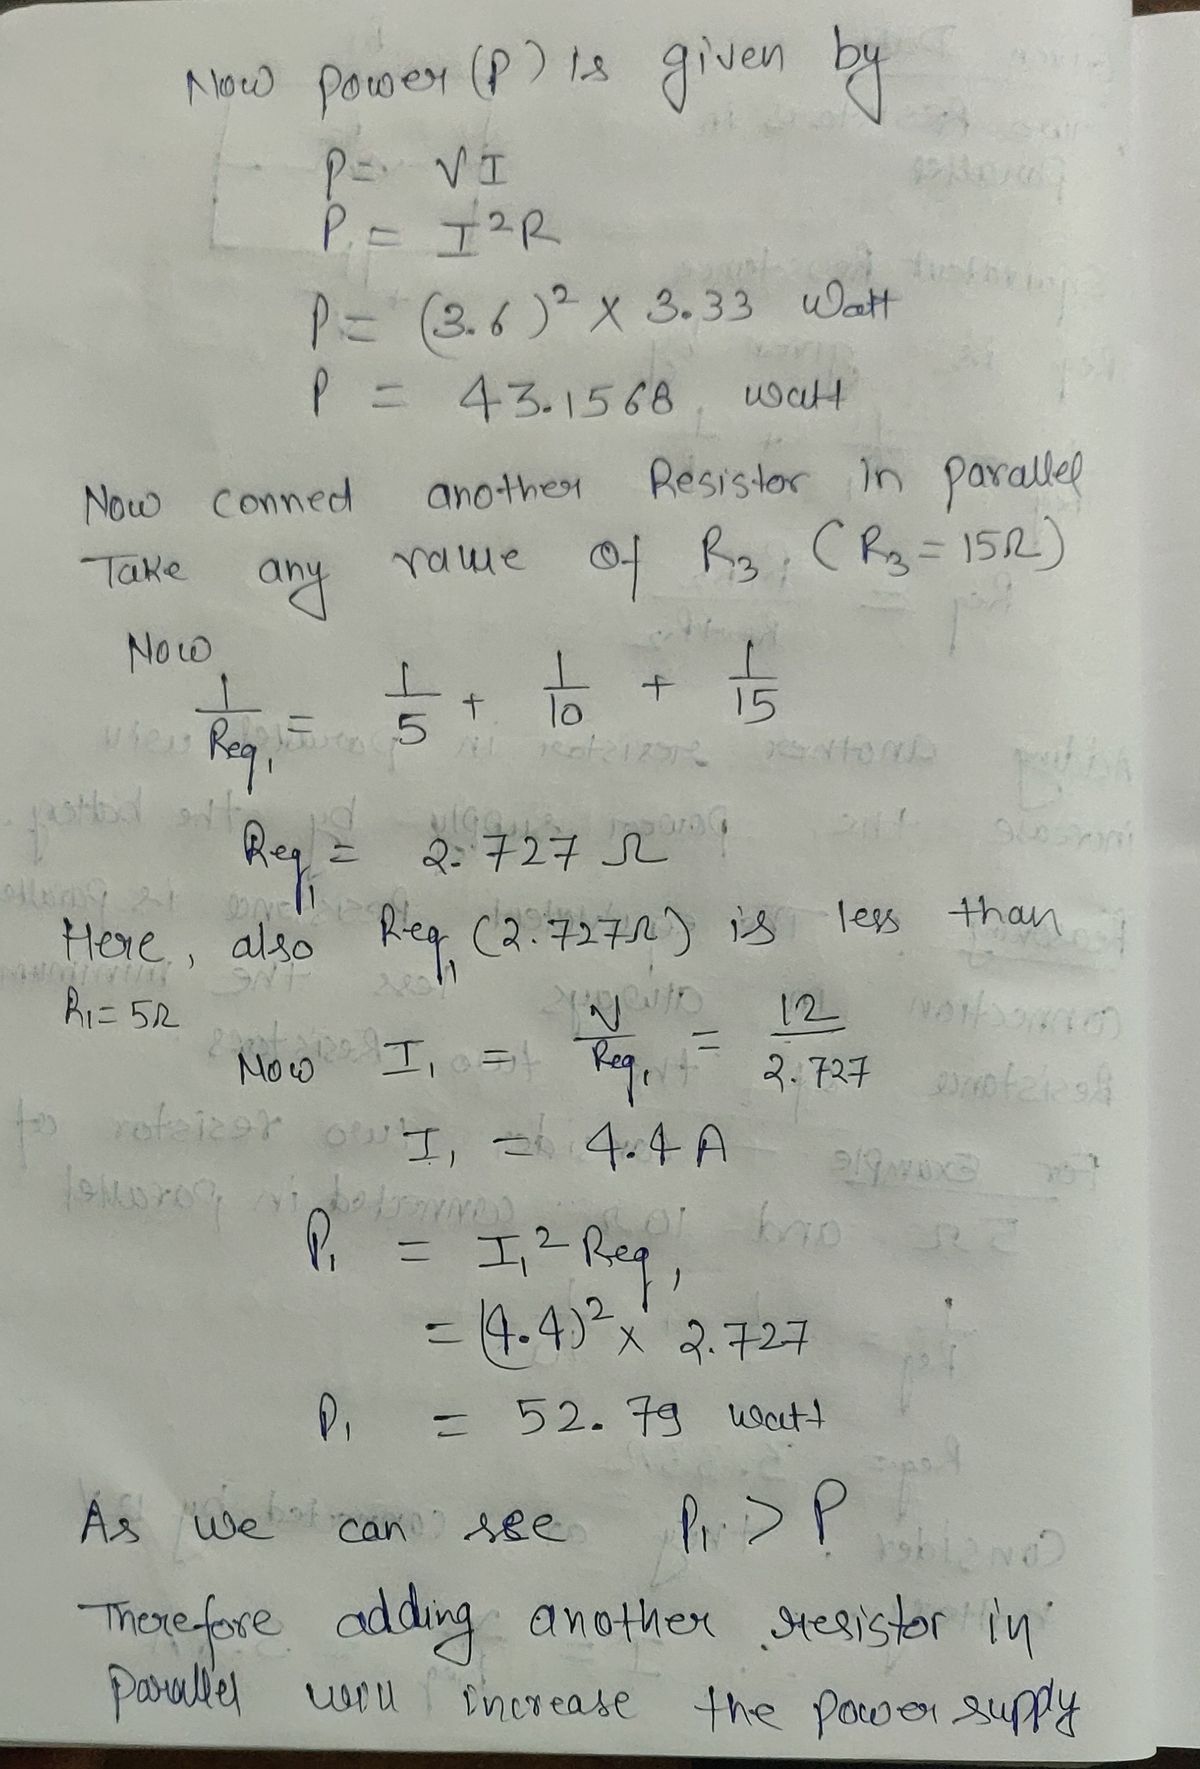 Now power (P) is given by
P = VI
P = I²R
P = (3.6)² × 3.33 Watt
P = 43.1568 watt
Now conned another Resistor in parallel
Take any value of R₃ (R₃ = 15Ω)
Now
1/Req₁ = 1/5 + 1/10 + 1/15
Req₁ = 2.727 Ω
Here, also Req₁ (2.727Ω) is less than
R₁ = 5Ω
Now I₁ = V/Req₁ = 12/2.727
I₁ = 4.4 A
P₁ = I₁² Req₁
= (4.4)² × 2.727
P₁ = 52.79 watt
As we can see P₁ > P
Therefore adding another resistor in
parallel will increase the power supply